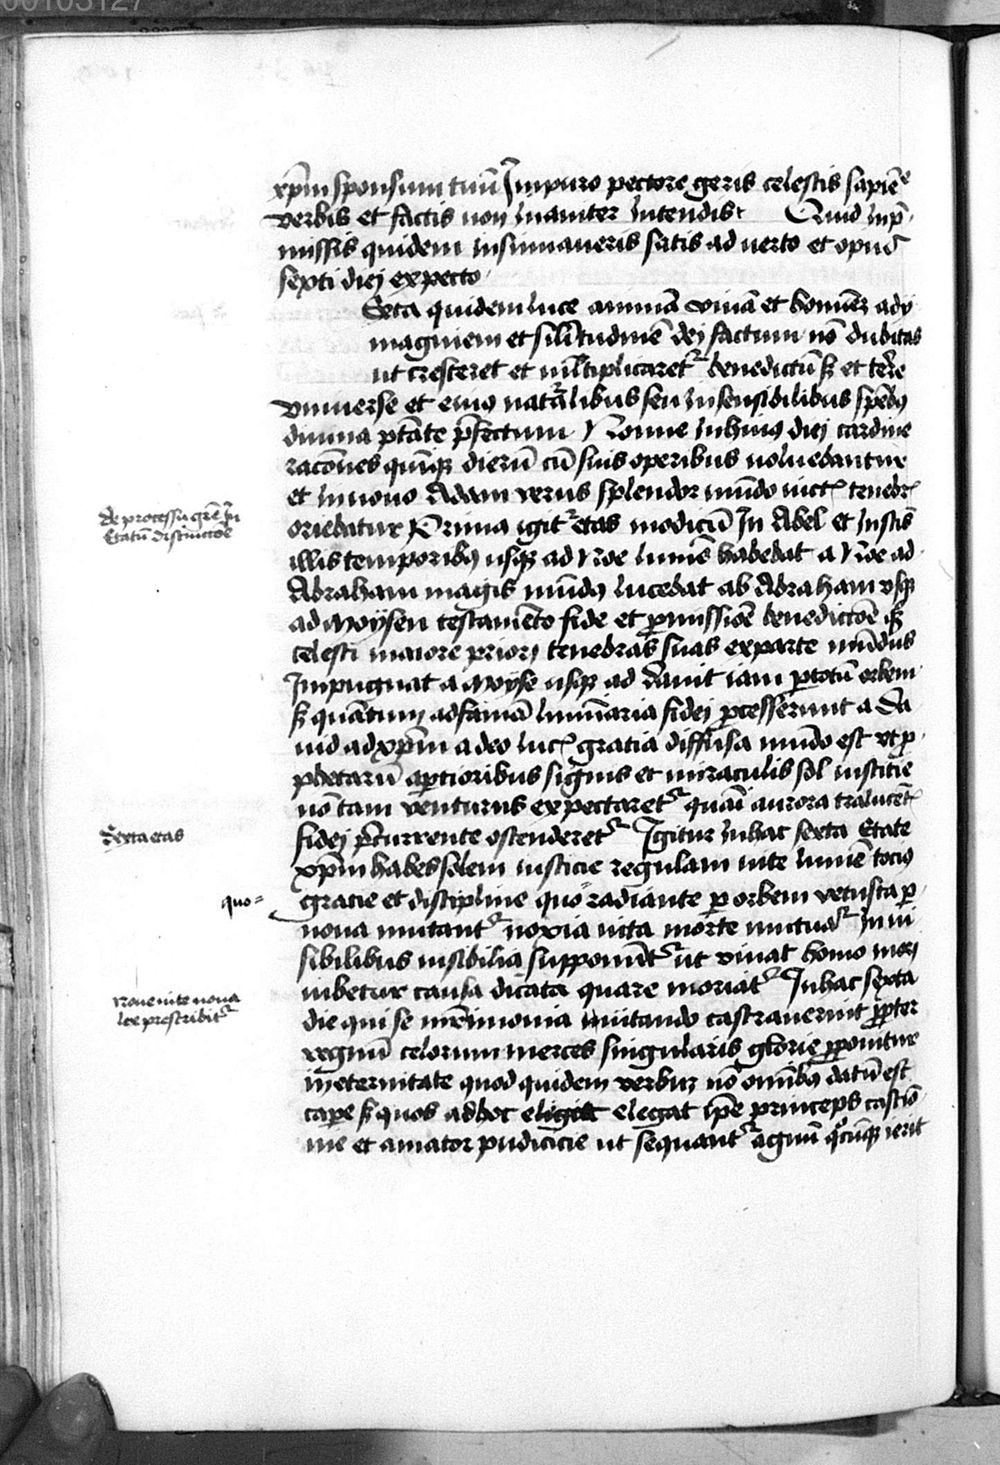 00103127
xpm̄ sponsum tuū In puro pectore geris celestis sapiē
verbis et factis non inaniter intendis Quid in p̄
missis quidem insinuaveris satis ad verto et opus
sexti diei expecto
Sexta quidem luce animā vivā et hominē ad y
maginem et silitudinē dei factum nō dubitas
ut cresceret et ml̄tiplicaretr benedictū sʒ et tere
vniverse et eius natalibus seu insensibilibus
divina ptāte pfectum Nonne in huius diei cardine
racōnes quīqʒ dierū cū suis operibus volvebantur
et in novo Adam verus splendor mūdo tenebr
oriebatur Prima igitr etas modicū In Abel et iustis
illis temporibʒ usqʒ ad Noe lumē habebat a Noe ad
Abraham magis mūdʒ lucebat ab Abraham vsqʒ
ad Moysen testamēto fide et pmissiōe benedictōe qʒ
celesti maiore priori tenebras suas ex parte mūdus
Impugnat a Moyse usqʒ ad Davit iam p totū orbem
sʒ quātum ad famā luminaria fidei pcesserunt a Da
vid ad xpm̄ a deo luc gratia diffusa mūdo est vt p
phetarū aptioribus signis et miraculis sol iusticie
nō tam venturus expectaretr quā aurora
fidei pcurrente ostenderetr Igitur in hac sexta Etate
xpm̄ habes solem iusticie regulam vite lumē tocius
gracie et discipline quo radiante p orbem vetusta p
nova mutantr noxia vita morte mutuar In vi
sibilibus visibilia supponūtr ut vivat homo mori
iubetur causa dicata quare moriatr In hac sexta
die qui se castraverint ppter
regnū celorum merces singularis glorie pponitur
in eternitate quod quidem verbum nō omībʒ datū est
cape sʒ quos ad hoc eligit elegat ipe princeps castio
nie et amator pudicicie ut sequantr agnū qcūqʒ ierit
de processu gre in
Etatū distinctōe
Sexta etas
quo=
Nove vite nova
lex prescribitr